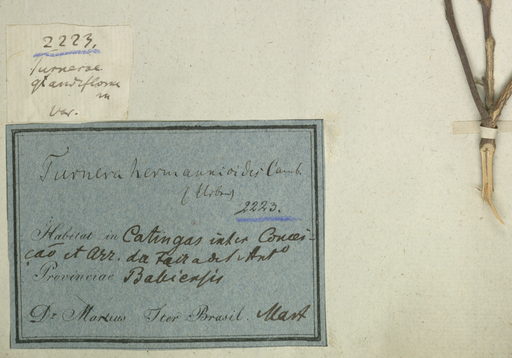 2223.
Turnerae
grandiflorae
var.
Turnera hermannioides Camb.
(Urban)
2223.
Habitat in Catingas inter Concei-
ção et Arr. da Feira de St Anto
Provinciae Bahiensis
Dr Martius Iter Brasil. Mart